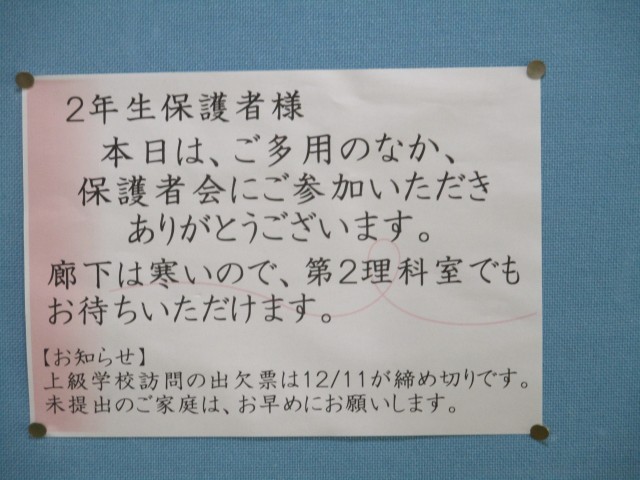 2年生保護者様
本日は、ご多用のなか、
保護者会にご参加いただき
ありがとうございます。
廊下は寒いので、第2理科室でも
お待ちいただけます。
【お知らせ】
上級学校訪問の出欠票は12/11が締め切りです。
未提出のご家庭は、お早めにお願いします。